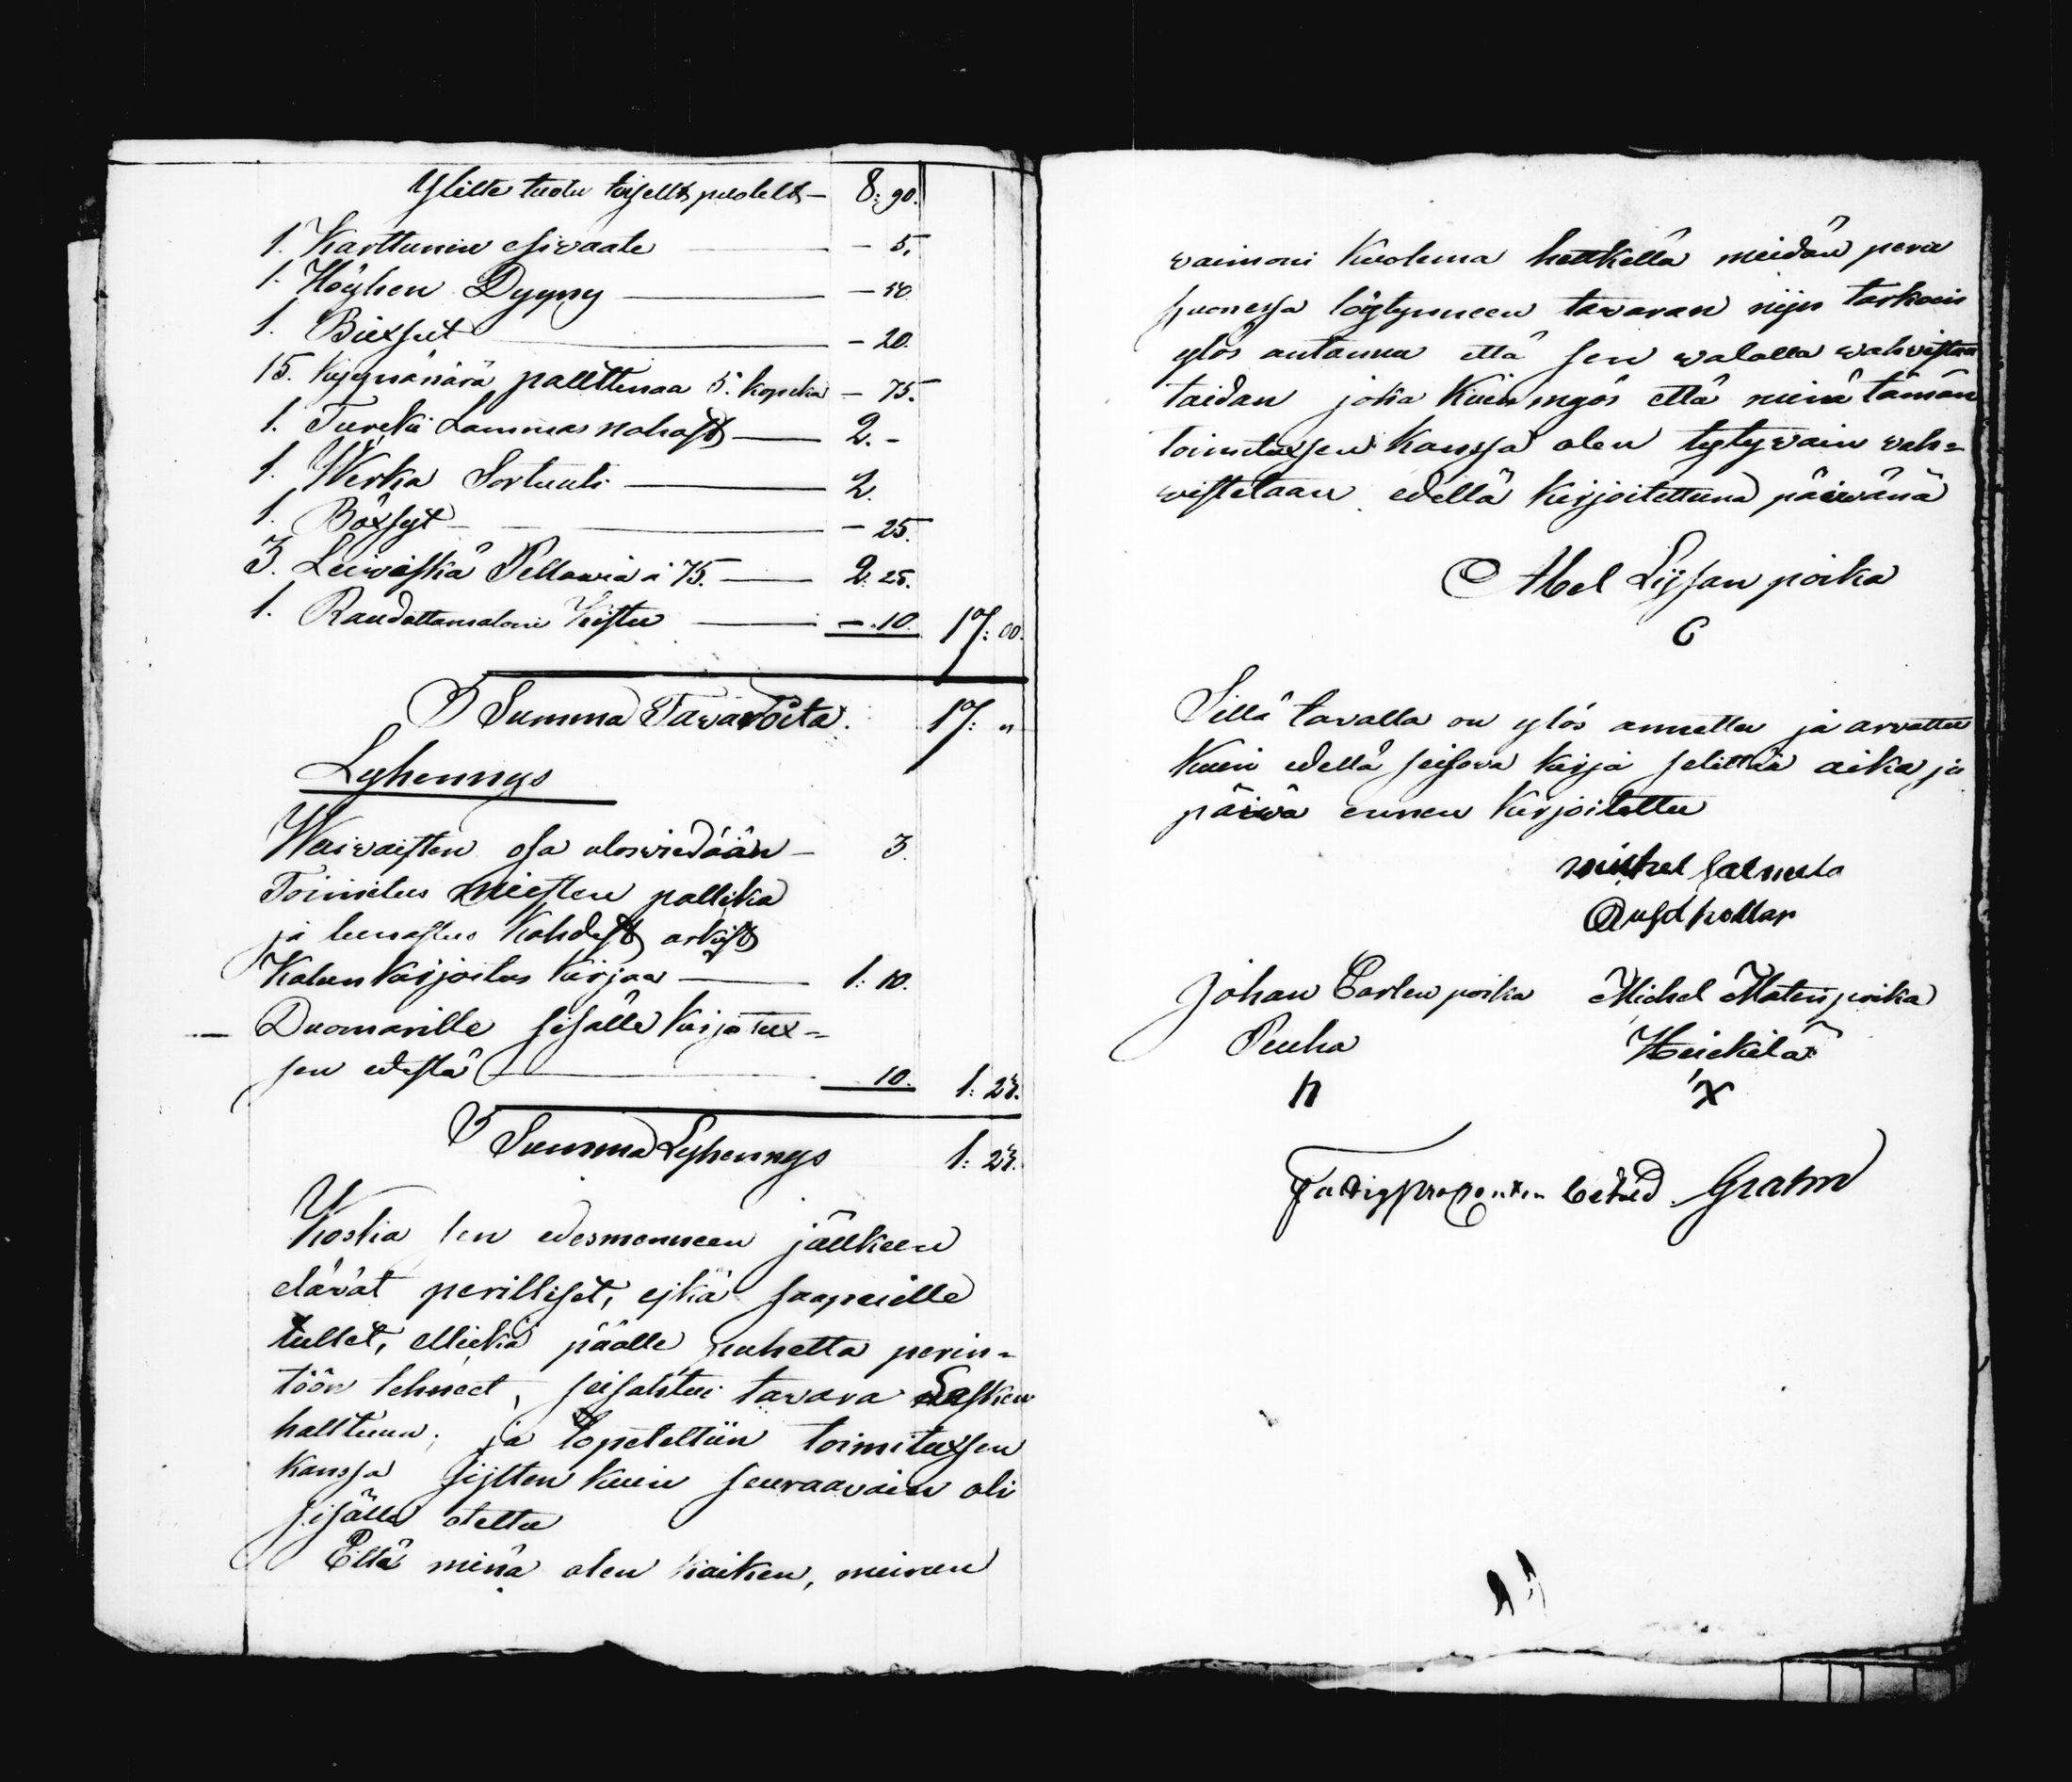 Ylitte tuotu toiselta puolelta — 8: 90.
1. Karttunin esivaate — 5.
1. Höyhen Dyyny — 50
1. Buxsut — 20.
15. Kyynärää palttinaa 5. kopeka — 75.
1. Turcki Lammas nahast — 2. -
1. Werka Sortuuti — 2.
1. Böxsyt — 25.
3. Leiwiskä Pellawia à 75. — 2: 25.
1. Raudattamatoin Kistu — 10. 17: 00.
Summa Tawaroita. 17: "
Lyhennys
Waiwaisten osa uloswiedään — 3.
Toimitus miesten pallka
ja leimastus Kahdest arkist
Kalun Kirjoitus Kirjaa — 1: 10.
Duomarille sisälle Kirjotux=
sen edestä — 10. 1: 23.
Summa Lyhennys 1: 23.
Koska sen edesmenneen jällkeen
elävät perilliset, ejkä saapuille
tullet, ellickä päälle puhetta perin=
töön tehneet, seisahtui tawara Lesken
halltuun; ja lopeteltiin toimituxsen
kanssa sijtten kuin seuraavain oli
sisälle otettu
Että minä olen kaiken, minun
vaimoni Kuolema hetkellä meidän pesa
huonessa löytynneen tawaran nijn tarkoin
ylös antanna että sen walalla wahwistaa
taidan joka Kuin myös että minä tämän
toimituxsen Kanssa olen tytywäin wah=
wistetaan edellä Kirjoitettuna päiwänä
Abel Lijsan poika
Sillä tavalla on ylös annettu ja arvattu
Kuin edellä seisova kirja selittää aika ja
päiwä ennen Kirjoitettu
Johan Carlen poika Michel Matin poika
Peuha Heickilä
Fattigprocenten betald Grahn